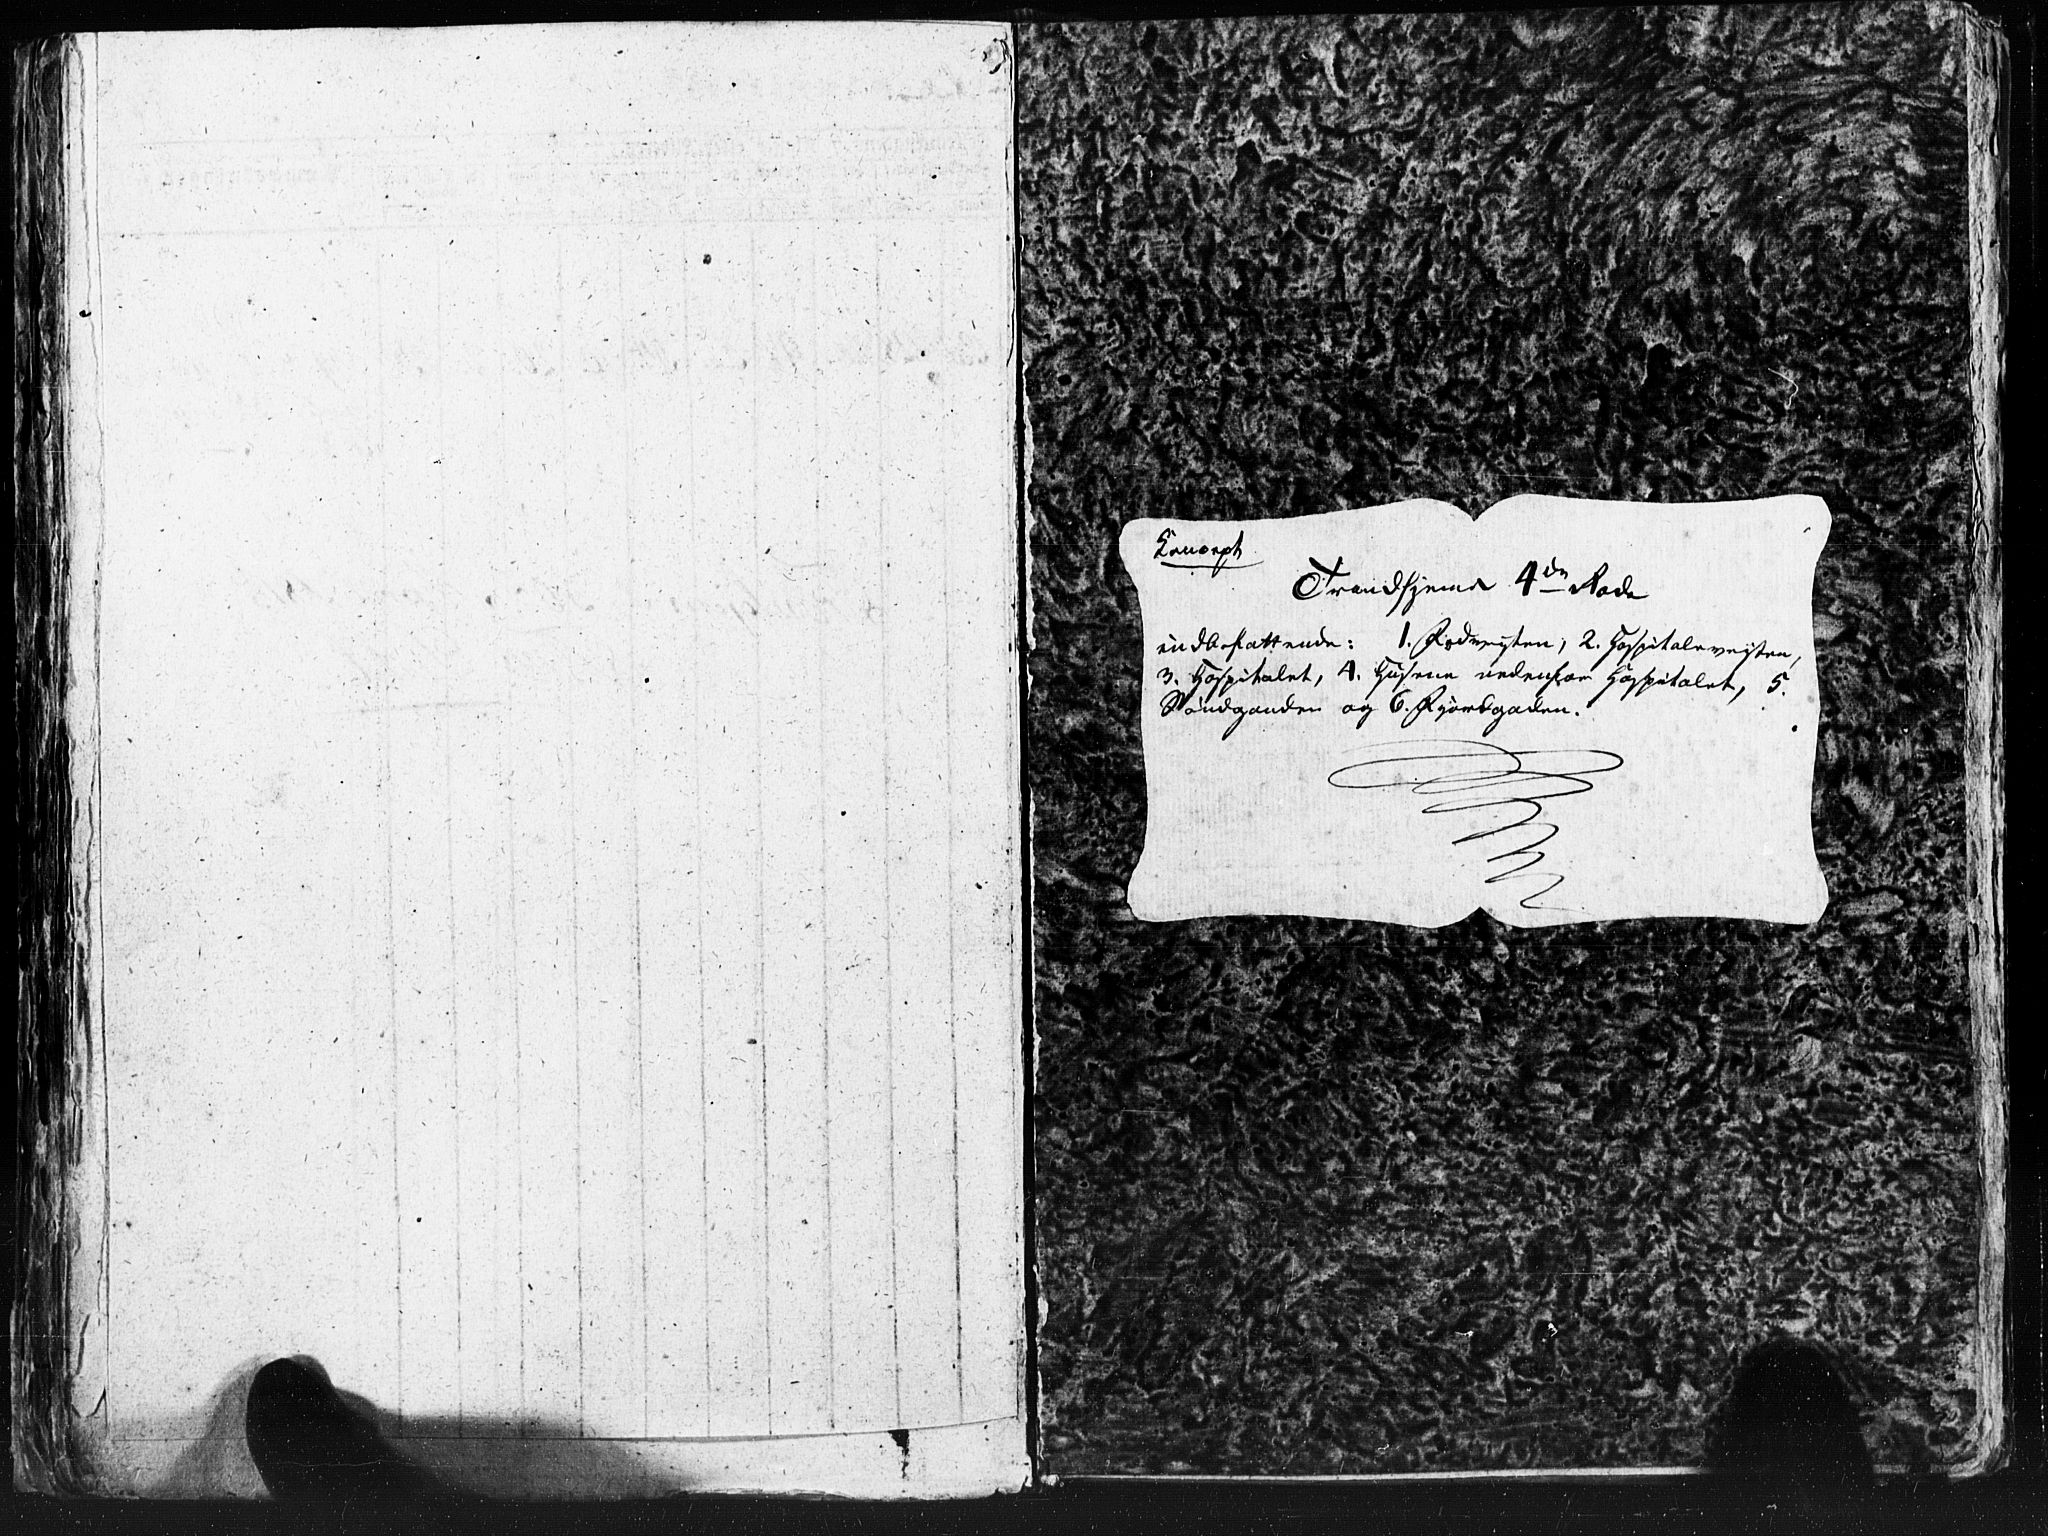 Koncept
Trondhjems 4de Rode
indbefattende: 1. Rodvegten, 2. Hospitalsvegten,
3. Hospitalet, 4. Husene nedenfor Hospitalet, 5.
Sandgaden og 6. Fjordgaden.